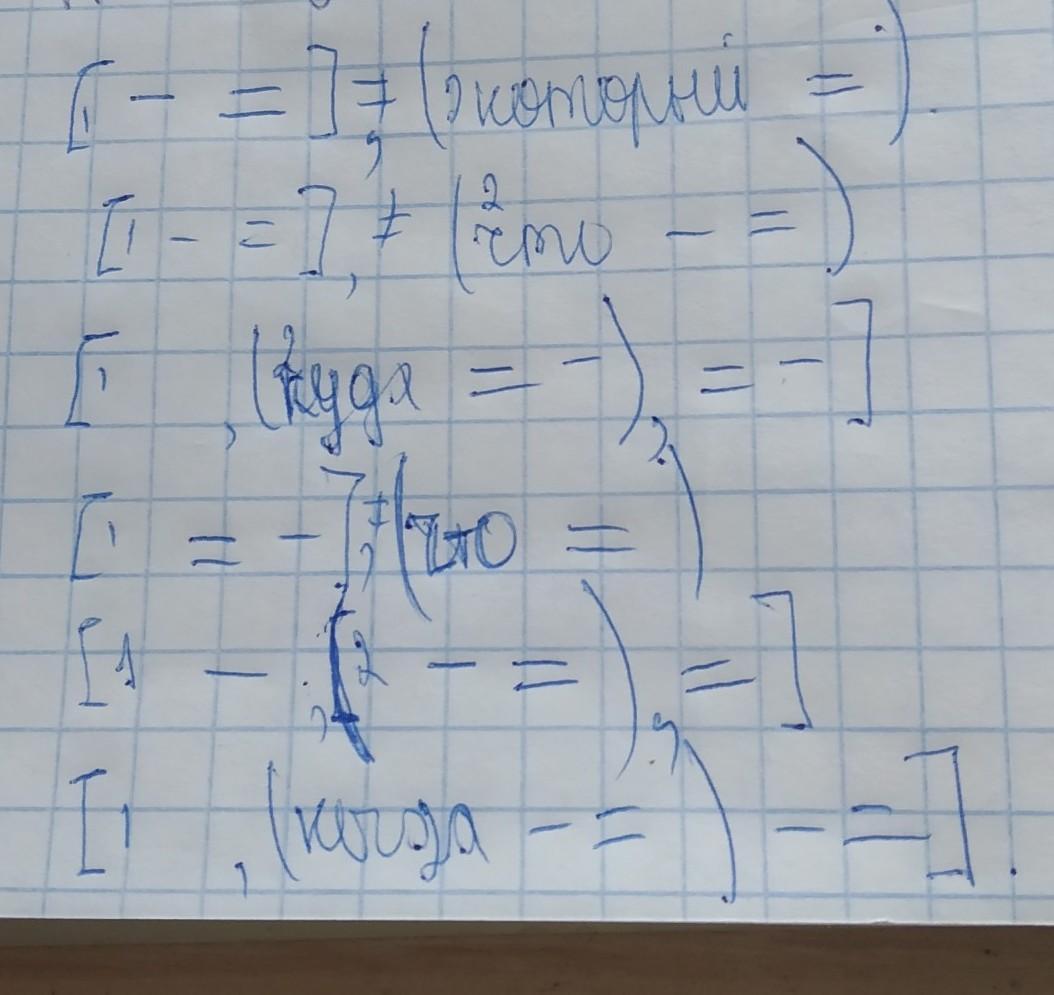 [1 - = ], ≠ (2 который = ).
[1 - = ], ≠ (2 что - = )
[1 , (2 куда = - ), = - ]
[1 = - ], ≠ (что = )
[1 - , (2 - = ), = ]
[1 , (когда - = ) - = ].